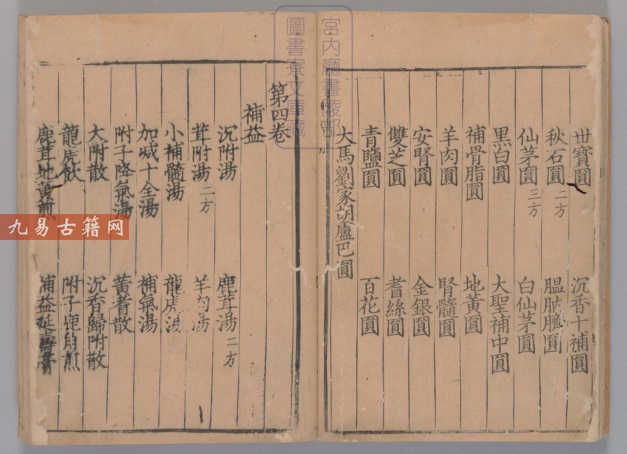 宮内廳書陵部
圖書寮文庫
丗寶圓　沉香十補圓
秋石圓二方　膃肭臍圓
仙茅圓三方　白仙茅圓
黒白圓　大聖補中圓
補骨脂圓　地黃圓
羊肉圓　腎髓圓
安腎圓　金銀圓
雙芝圓　耆絲圓
青鹽圓　百花圓
大馬劉家胡盧巴圓
第四卷
補益
沉附湯　鹿茸湯二方
茸附湯二方　羊肉湯
小補髓湯　龍虎湯
加減十全湯　補氣湯
附子降氣湯　黃耆散
大附散　沉香歸附散
龍虎飲　附子鹿角煎
鹿茸地黃煎　補益延壽膏
九易古籍网